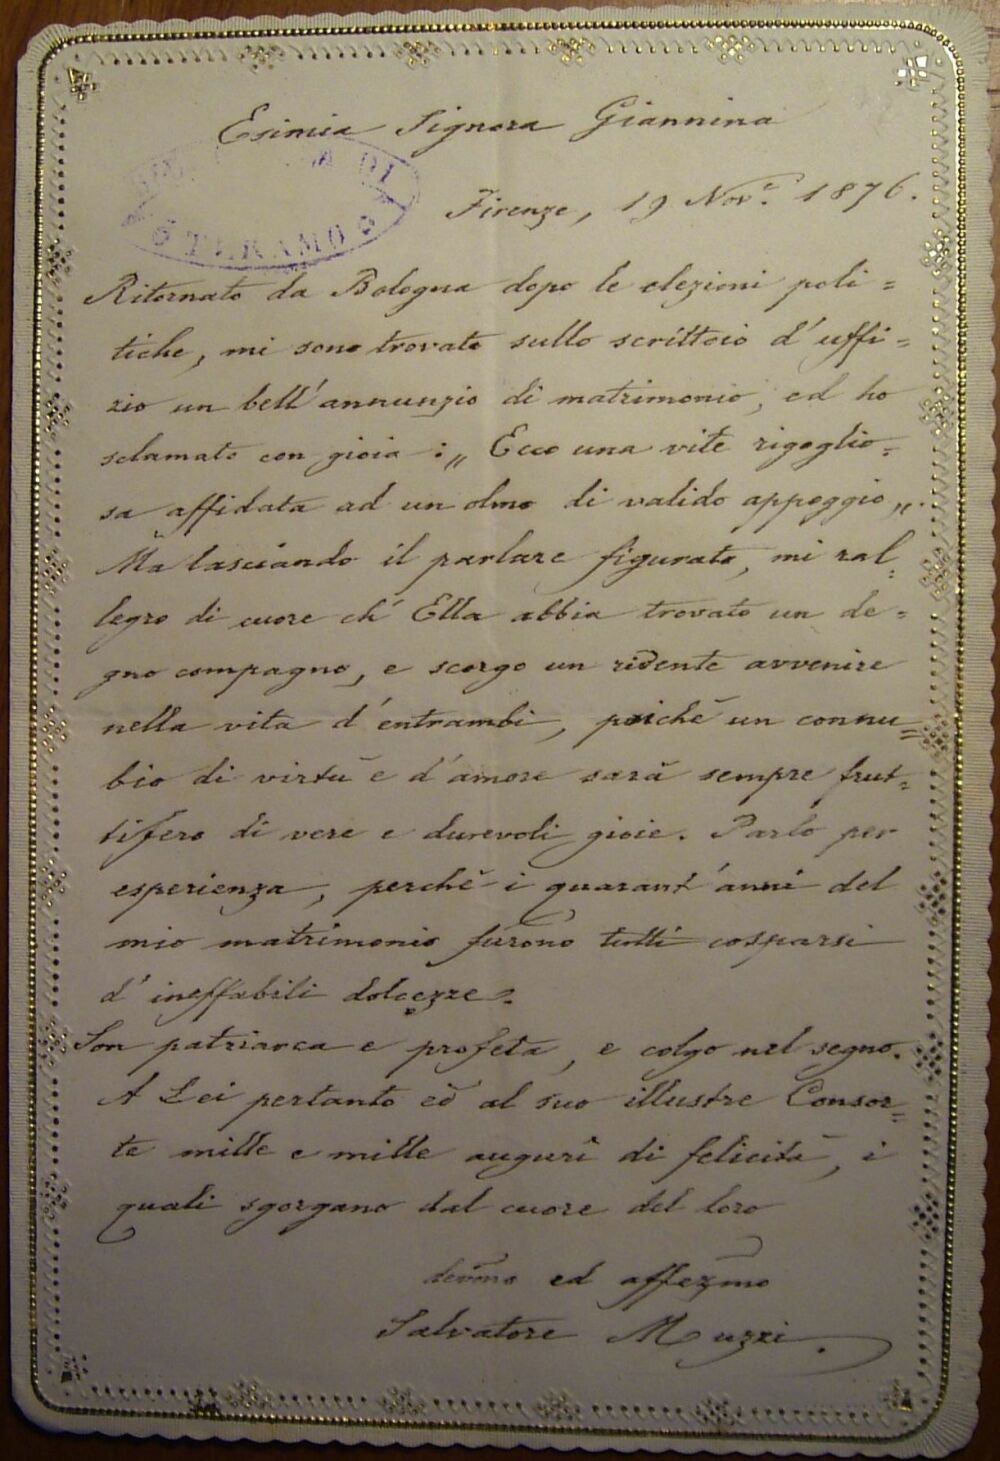 Esimia Signora Giannina
DI
TERAMO
Firenze, 19 Nov.e 1876.
Ritornato da Bologna dopo le elezioni poli=
tiche, mi sono trovato sullo scrittoio d'uffi=
zio un bell'annunzio di matrimonio, ed ho
sclamato con gioia: „ Ecco una vite rigoglio=
sa affidata ad un olmo di valido appoggio „.
Ma lasciando il parlare figurato, mi ral=
legro di cuore ch'Ella abbia trovato un de=
gno compagno, e scorgo un ridente avvenire
nella vita d'entrambi, poichè un connu=
bio di virtù e d'amore sarà sempre frut=
tifero di vere e durevoli gioie. Parlo per
esperienza, perchè i quarant'anni del
mio matrimonio furono tutti cosparsi
d'ineffabili dolcezze.
Son patriarca e profeta, e colgo nel segno.
A Lei pertanto ed al suo illustre Consor=
te mille e mille augurî di felicità, i
quali sgorgano dal cuore del loro
devmo ed affezmo
Salvatore Muzzi.